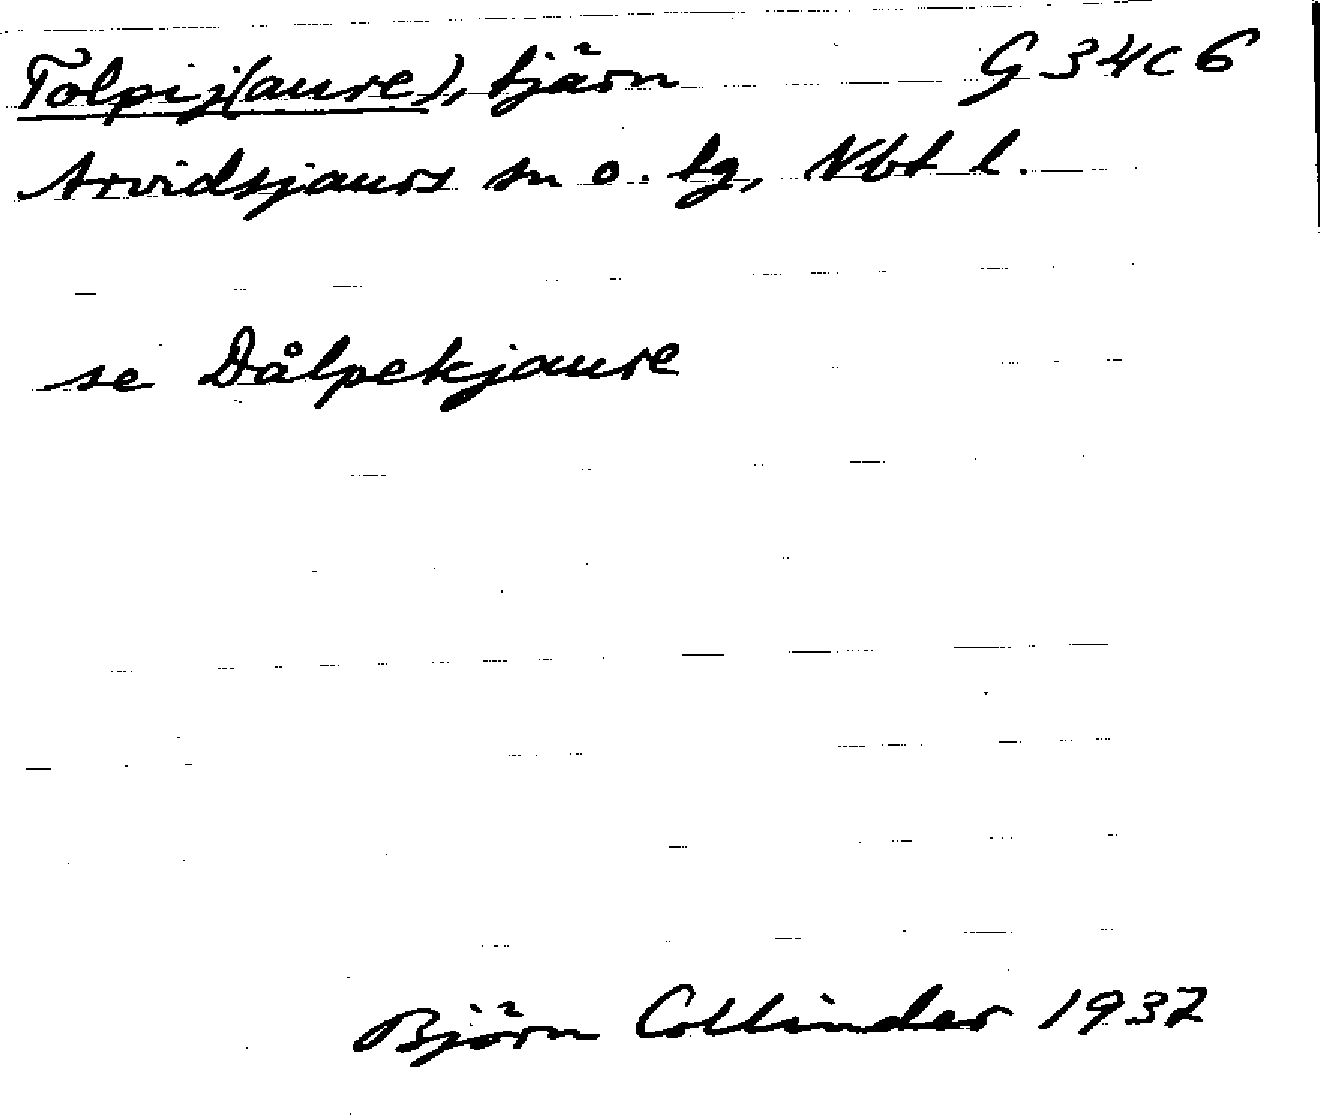 Tolpij(aure), tjärn G 34c 6
Arvidsjaurs sn o. tg, Nbt l.
se Dålpekjaure
Björn Collinder 1937